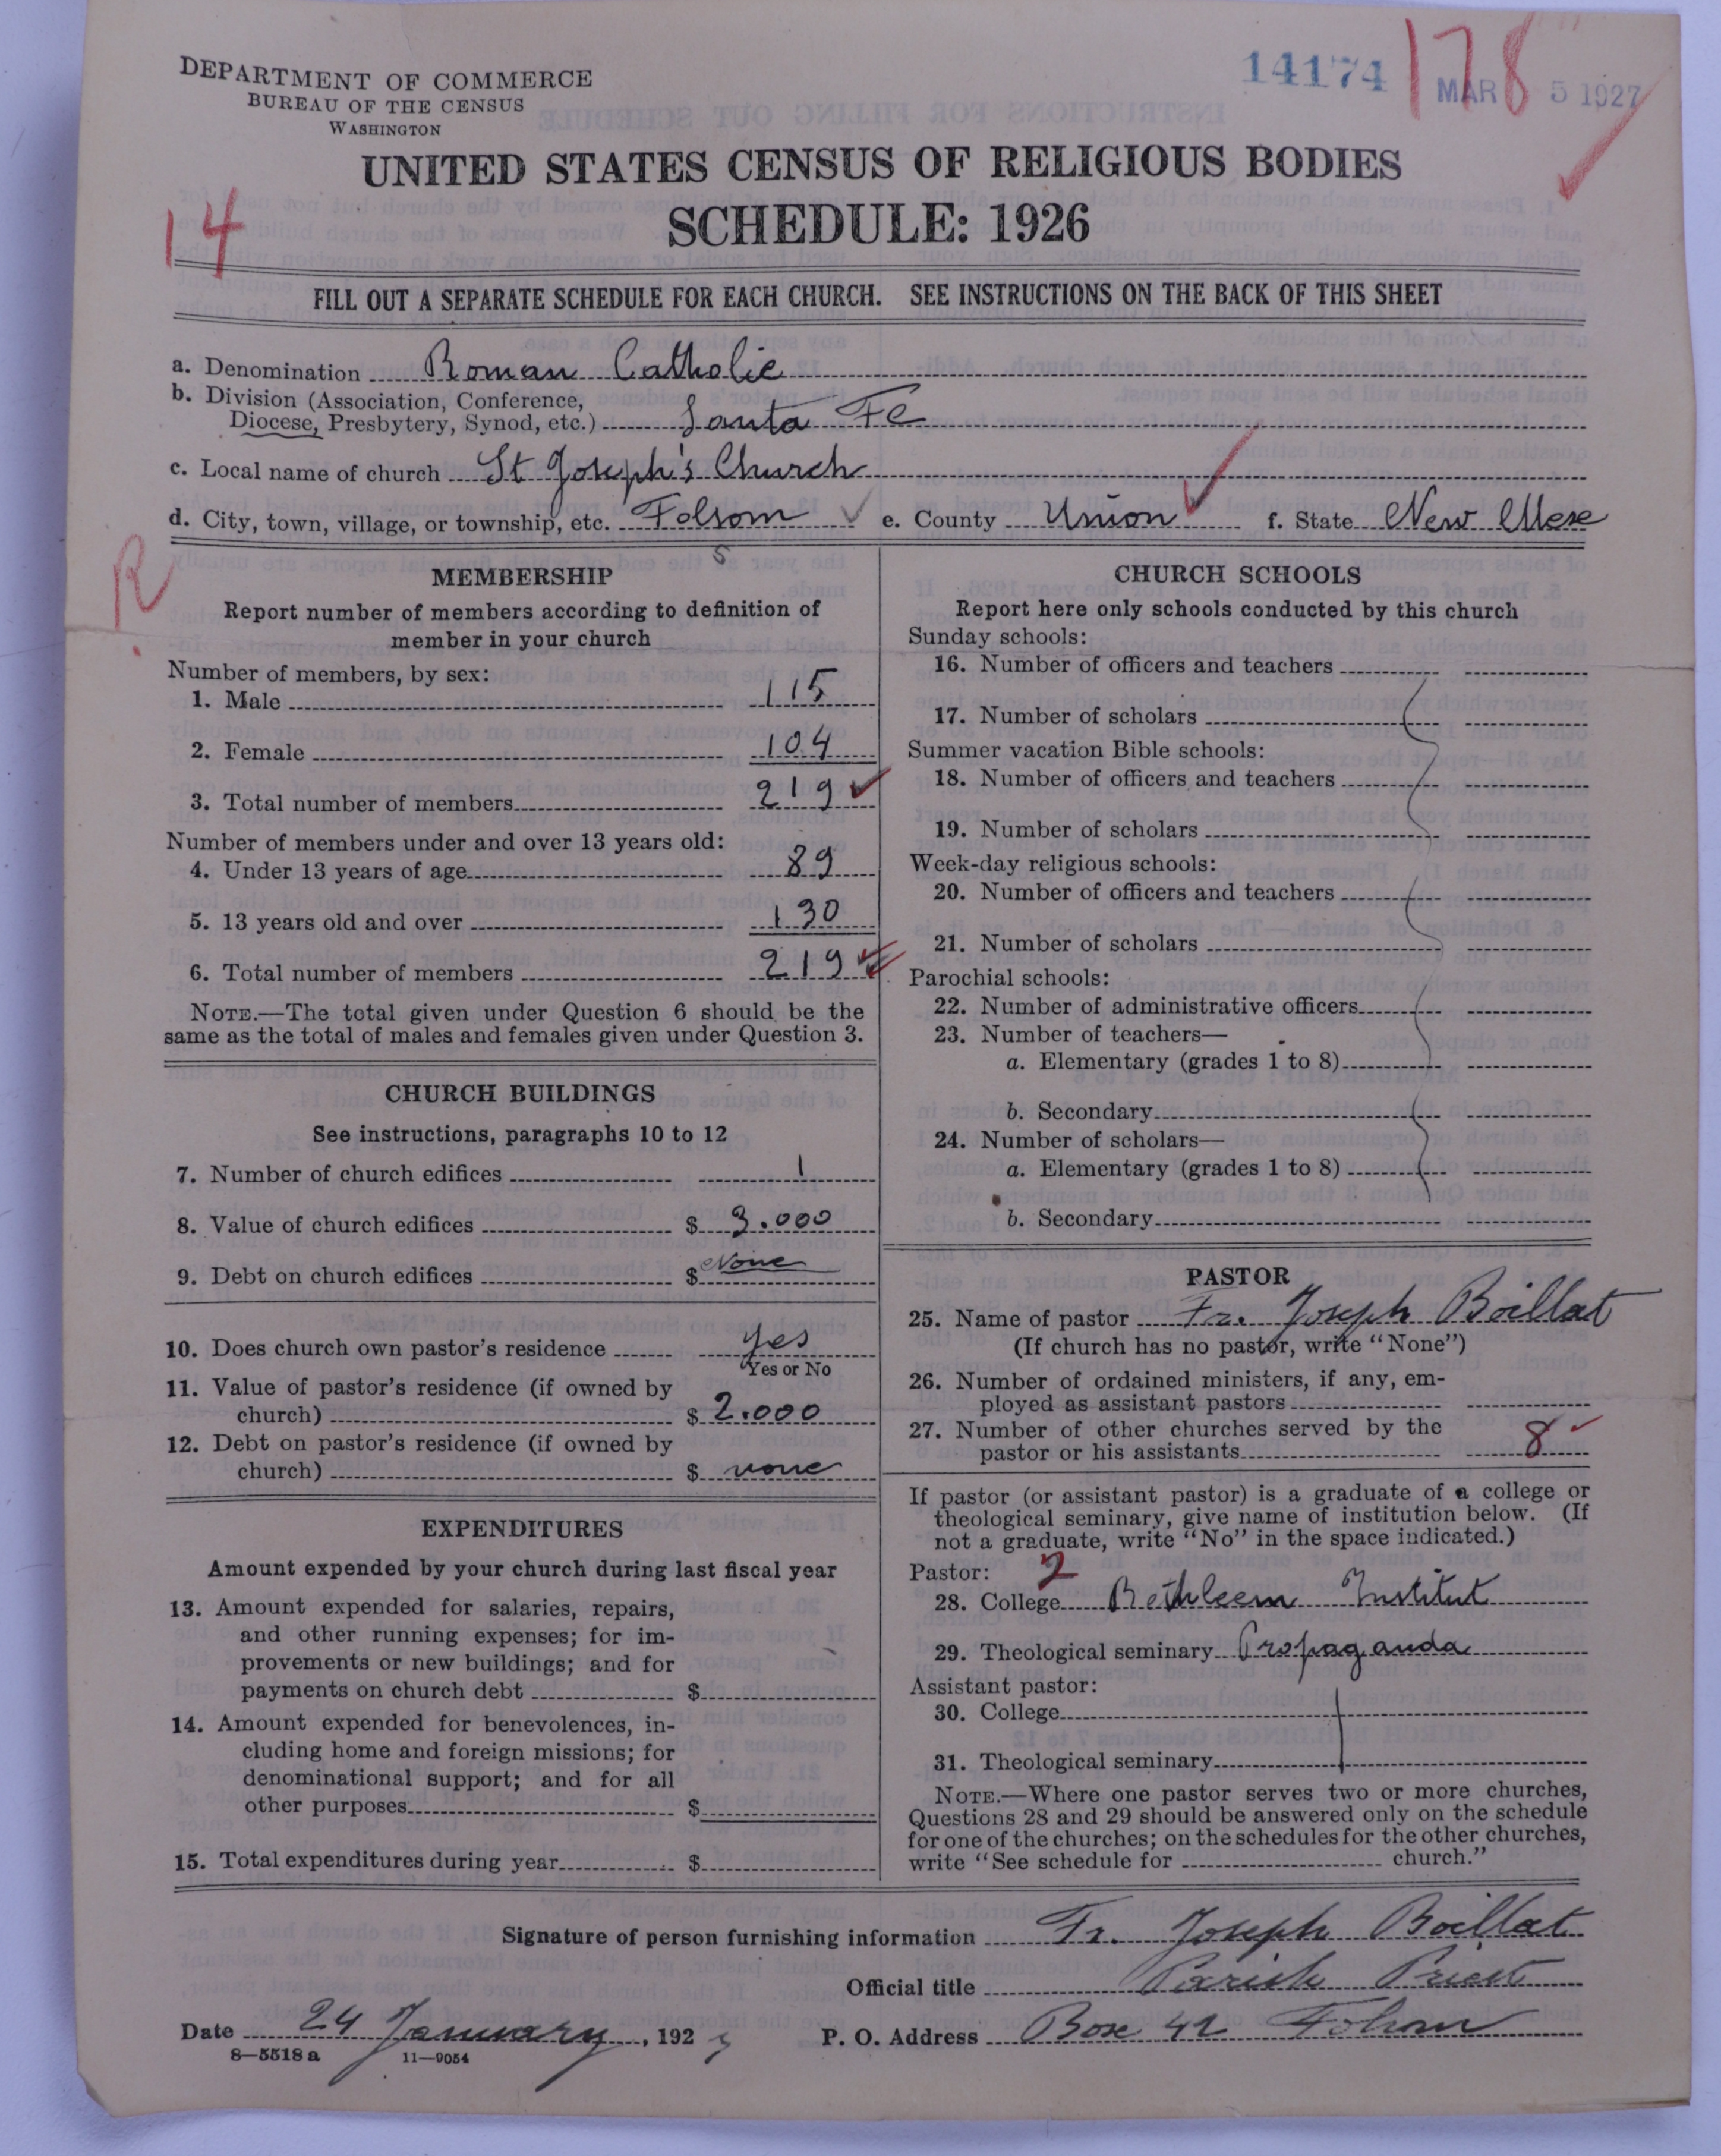 DEPARTMENT OF COMMERCE
BUREAU OF THE CENSUS
WASHINGTON
14174
178
MAR 5 1927
UNITED STATES CENSUS OF RELIGIOUS BODIES
SCHEDULE: 1926
14
FILL OUT A SEPARATE SCHEDULE FOR EACH CHURCH. SEE INSTRUCTIONS ON THE BACK OF THIS SHEET
a. Denomination Roman Catholic
b. Division (Association, Conference,
Diocese, Presbytery, Synod, etc.) Santa Fe
c. Local name of church St Joseph's Church
d. City, town, village, or township, etc. Folsom e. County Union f. State New Mex
R
MEMBERSHIP
Report number of members according to definition of
member in your church
Number of members, by sex:
1. Male 115
2. Female 104
3. Total number of members 219
Number of members under and over 13 years old:
4. Under 13 years of age 89
5. 13 years old and over 130
6. Total number of members 219
NOTE.—The total given under Question 6 should be the
same as the total of males and females given under Question 3.
CHURCH BUILDINGS
See instructions, paragraphs 10 to 12
7. Number of church edifices 1
8. Value of church edifices $ 3.000
9. Debt on church edifices $ None
10. Does church own pastor's residence yes
Yes or No
11. Value of pastor's residence (if owned by
church) $ 2.000
12. Debt on pastor's residence (if owned by
church) $ none
EXPENDITURES
Amount expended by your church during last fiscal year
13. Amount expended for salaries, repairs,
and other running expenses; for im-
provements or new buildings; and for
payments on church debt $
14. Amount expended for benevolences, in-
cluding home and foreign missions; for
denominational support; and for all
other purposes $
15. Total expenditures during year $
CHURCH SCHOOLS
Report here only schools conducted by this church
Sunday schools:
16. Number of officers and teachers
17. Number of scholars
Summer vacation Bible schools:
18. Number of officers and teachers
19. Number of scholars
Week-day religious schools:
20. Number of officers and teachers
21. Number of scholars
Parochial schools:
22. Number of administrative officers
23. Number of teachers—
a. Elementary (grades 1 to 8)
b. Secondary
24. Number of scholars—
a. Elementary (grades 1 to 8)
b. Secondary
PASTOR
25. Name of pastor Fr. Joseph Boillat
(If church has no pastor, write "None")
26. Number of ordained ministers, if any, em-
ployed as assistant pastors
27. Number of other churches served by the
pastor or his assistants 8
If pastor (or assistant pastor) is a graduate of a college or
theological seminary, give name of institution below. (If
not a graduate, write "No" in the space indicated.)
Pastor: 2
28. College Bethleem Institut
29. Theological seminary Propaganda
Assistant pastor:
30. College
31. Theological seminary
NOTE.—Where one pastor serves two or more churches,
Questions 28 and 29 should be answered only on the schedule
for one of the churches; on the schedules for the other churches,
write "See schedule for church."
Signature of person furnishing information Fr. Joseph Boillat
Official title Parish Priest
Date 24 January, 192 P. O. Address Box 42 Folsom
8—5518 a 11—9054